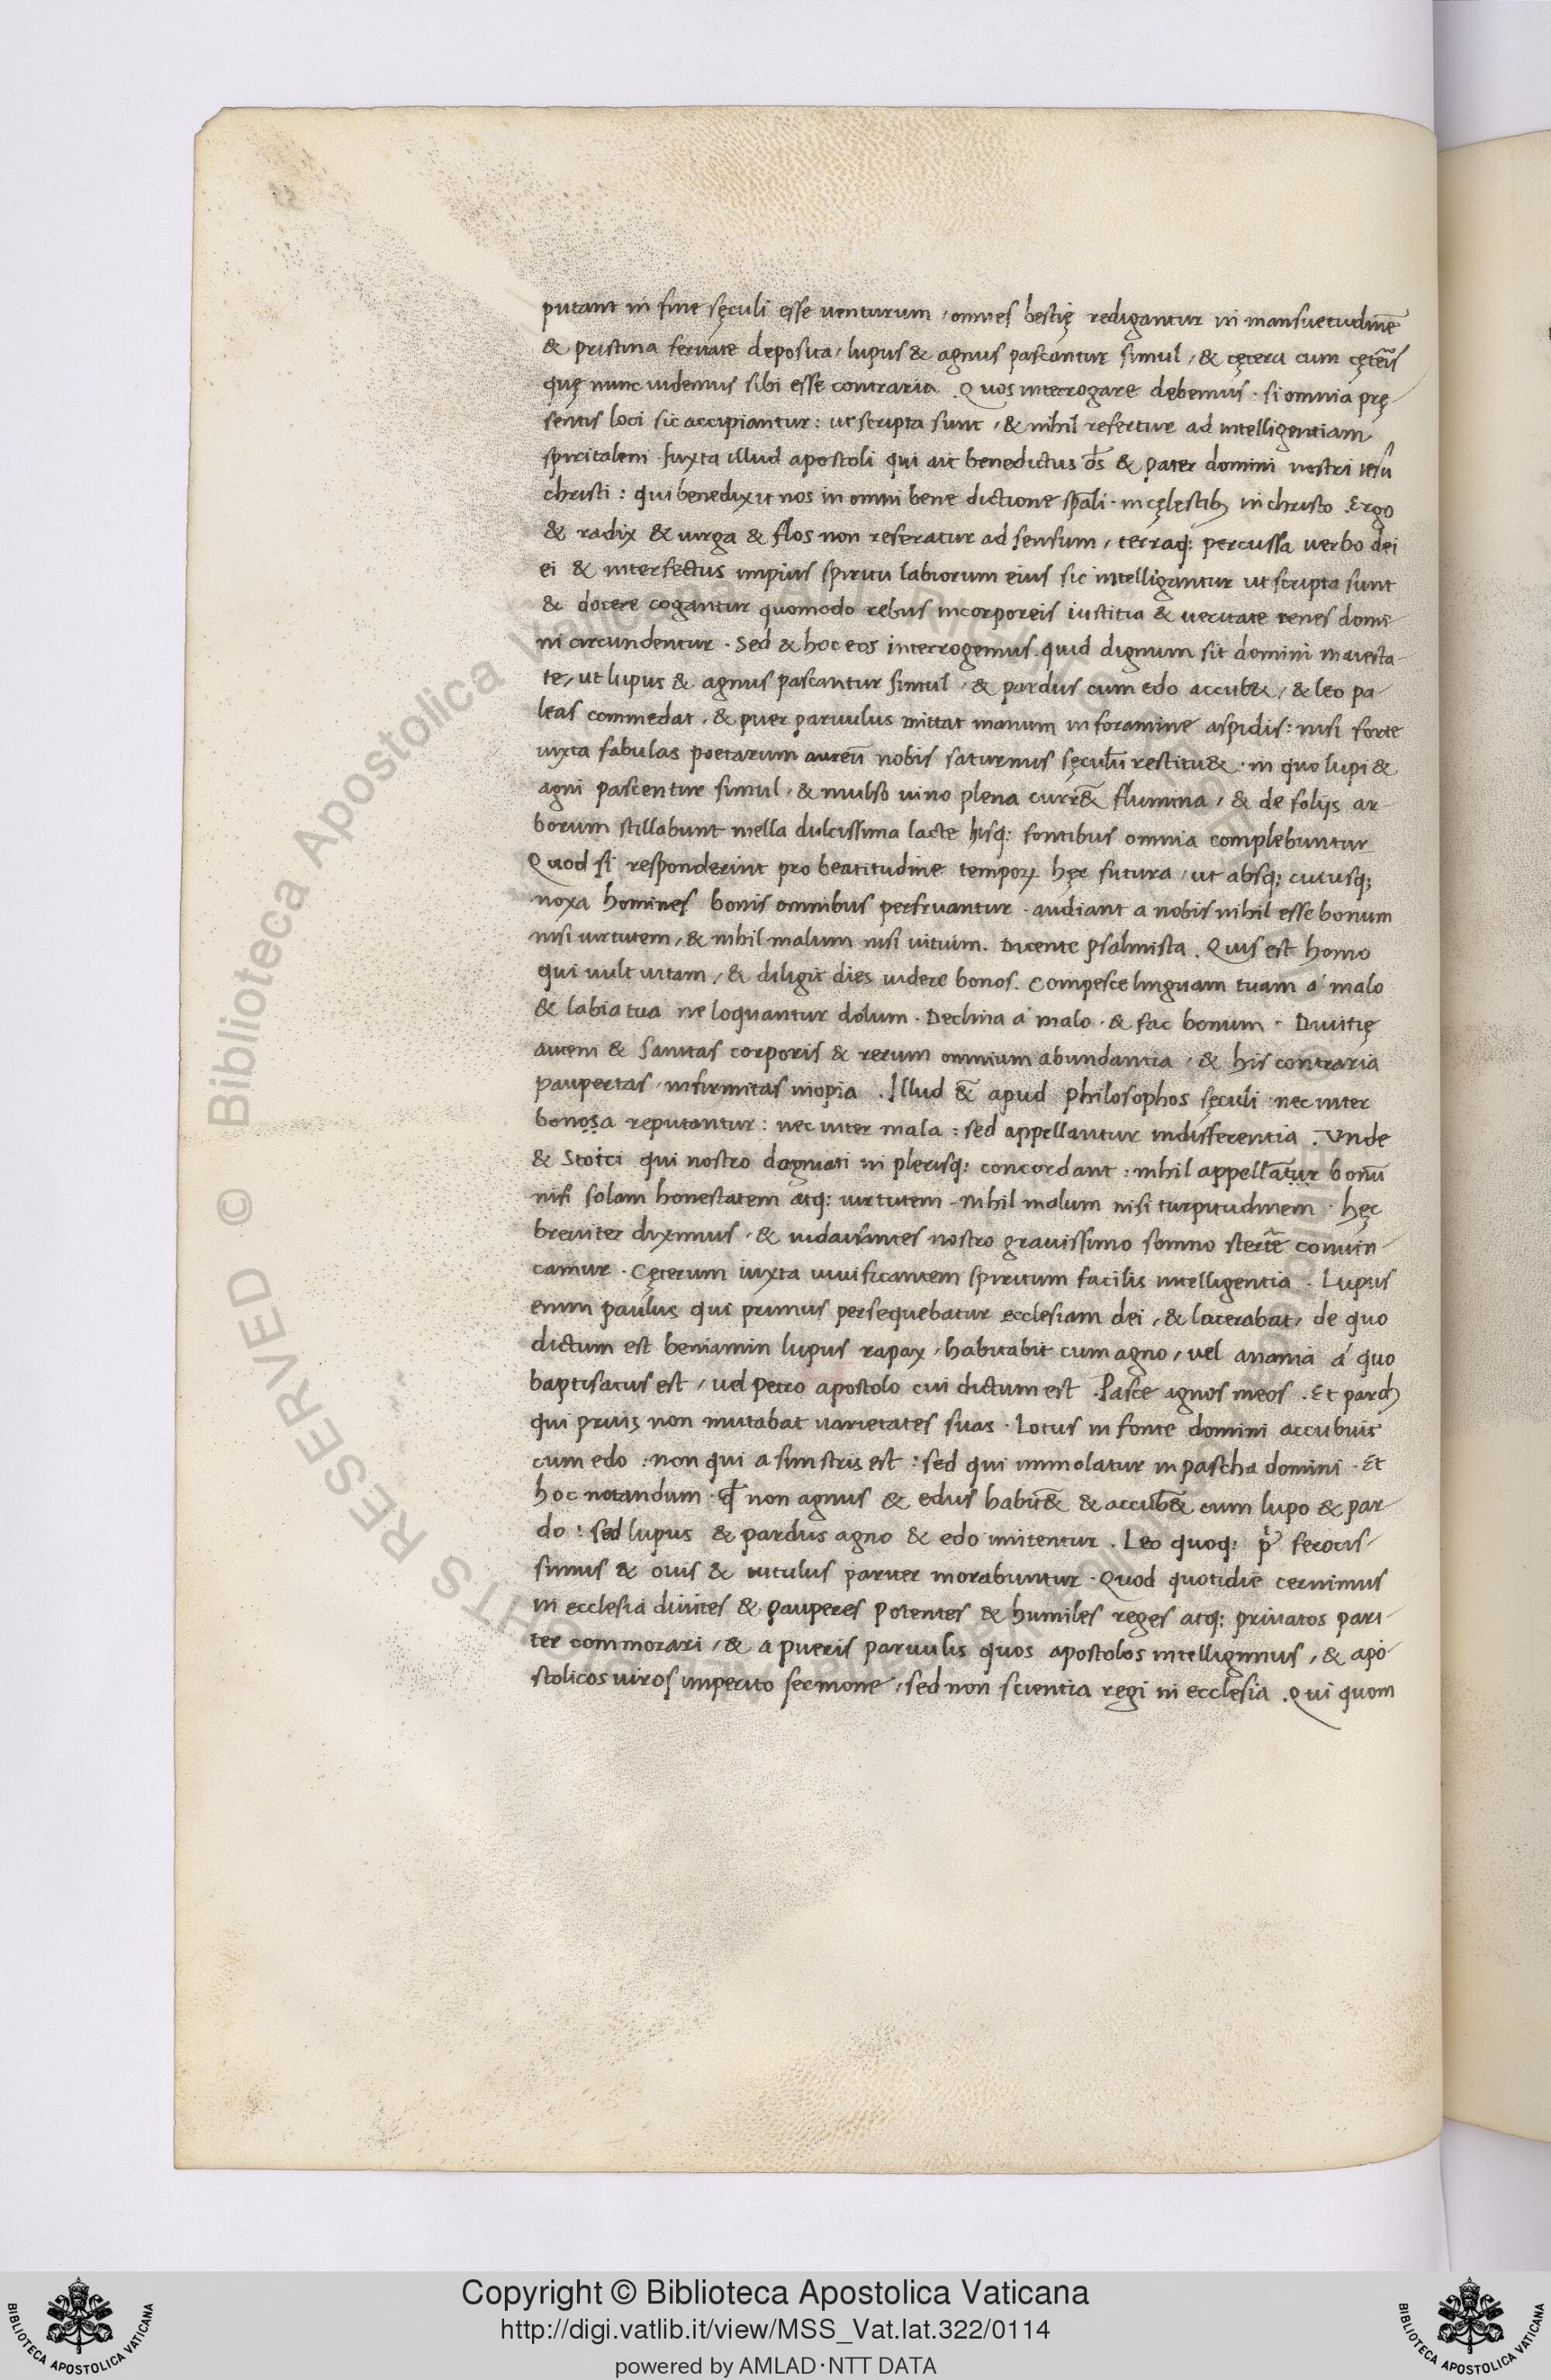 putant in fine sęculi esse uenturum, omnes bestię redigantur in mansuetudinē
& pristina feritate deposita, lupus & agnus pascantur simul, & cętera cum cętēis
quę nunc uidemus sibi esse contraria. Quos interrogare debemus. si omnia prę
sentis loci sic accipiantur: ut scripta sunt, & nihil refertur ad intelligentiam
spiritalem. Iuxta illud apostoli qui ait benedictus d̄s & pater domini nostri iesu
christi: qui benedixit nos in omni bene dictione sp̄ali. in cęlestib; in christo. Ergo
& radix & uirga & flos non referatur ad sensum, terraq; percussa uerbo dei
ei & interfectus impius spiritu labiorum eius sic intelligantur ut scripta sunt
& docere cogantur quomodo rebus incorporeis iustitia & ueritate renes domi-
ni circundentur. Sed & hoc eos interrogemus. quid dignum sit domini maiesta-
te, ut lupus & agnus pascantur simul, & pardus cum edo accub&, & leo pa-
leas commedat, & puer paruulus mittat manum in foramine aspidis: nisi forte
iuxta fabulas poetarum aureū nobis saturnus sęculū restitu&. in quo lupi &
agni pascentur simul, & mulso uino plena curr̄& flumina, & de folijs ar-
borum stillabunt mella dulcissima lacte hisq; fontibus omnia complebuntur
Quod si responderint pro beatitudine temporꝝ hęc futura, ut absq; cuiusq;
noxa homines bonis omnibus perfruantur. audiant a nobis nihil esse bonum
nisi uirtutem, & nihil malum nisi uitium. Dicente psalmista. Quis est homo
qui uult uitam, & diligit dies uidere bonos. Compesce linguam tuam á malo
& labia tua ne loquantur dolum. Declina á malo. & fac bonum. Diuitię
autem & sanitas corporis & rerum omnium abundantia, & his contraria
paupertas, infirmitas inopia. Illud &̄ apud philosophos sęculi. nec inter
bonosa reputantur: nec inter mala: sed appellantur indifferentia. Vnde
& Stoici qui nostro dogmati in plerisq; concordant: nihil appellātur bonū
nisi solam honestatem atq; uirtutem. nihil malum nisi turpitudinem. hęc
breuiter diximus, & iudaizantes nostro grauissimo somno stertē conuin-
camur. Cęterum iuxta uiuificantem spiritum facilis intelligentia. Lupus
enim paulus qui primus persequebatur ecclesiam dei, & lacerabat, de quo
dictum est beniamin lupus rapax, habitabit cum agno, uel anania á quo
baptisatus est, uel petro apostolo cui dictum est. Pasce agnos meos. Et pard;
qui prius non mutabat uarietates suas. Lotus in fonte domini accubuit
cum edo: non qui a sinistris est: sed qui immolatur in pascha domini. Et
hoc notandum. qd̄ non agnus & edus habit̄& & accub̄& cum lupo & par-
do: sed lupus & pardus agno & edo imitentur. Leo quoq; p̄r ferocis-
simus & ouis & uitulus pariter morabuntur. Quod quotidie cernimus
in ecclesia diuites & pauperes potentes & humiles reges atq; priuatos pari-
ter commorari, & a pueris paruulis quos apostolos intelligimus, & apo-
stolicos uiros imperito sermone, sed non scientia regi in ecclesia. Qui quom
© Biblioteca Apostolica Vaticana
RIGHTS RESERVED
Copyright © Biblioteca Apostolica Vaticana
http://digi.vatlib.it/view/MSS_Vat.lat.322/0114
powered by AMLAD·NTT DATA
BIBLIOTECA APOSTOLICA VATICANA
BIBLIOTECA APOSTOLICA VATICANA